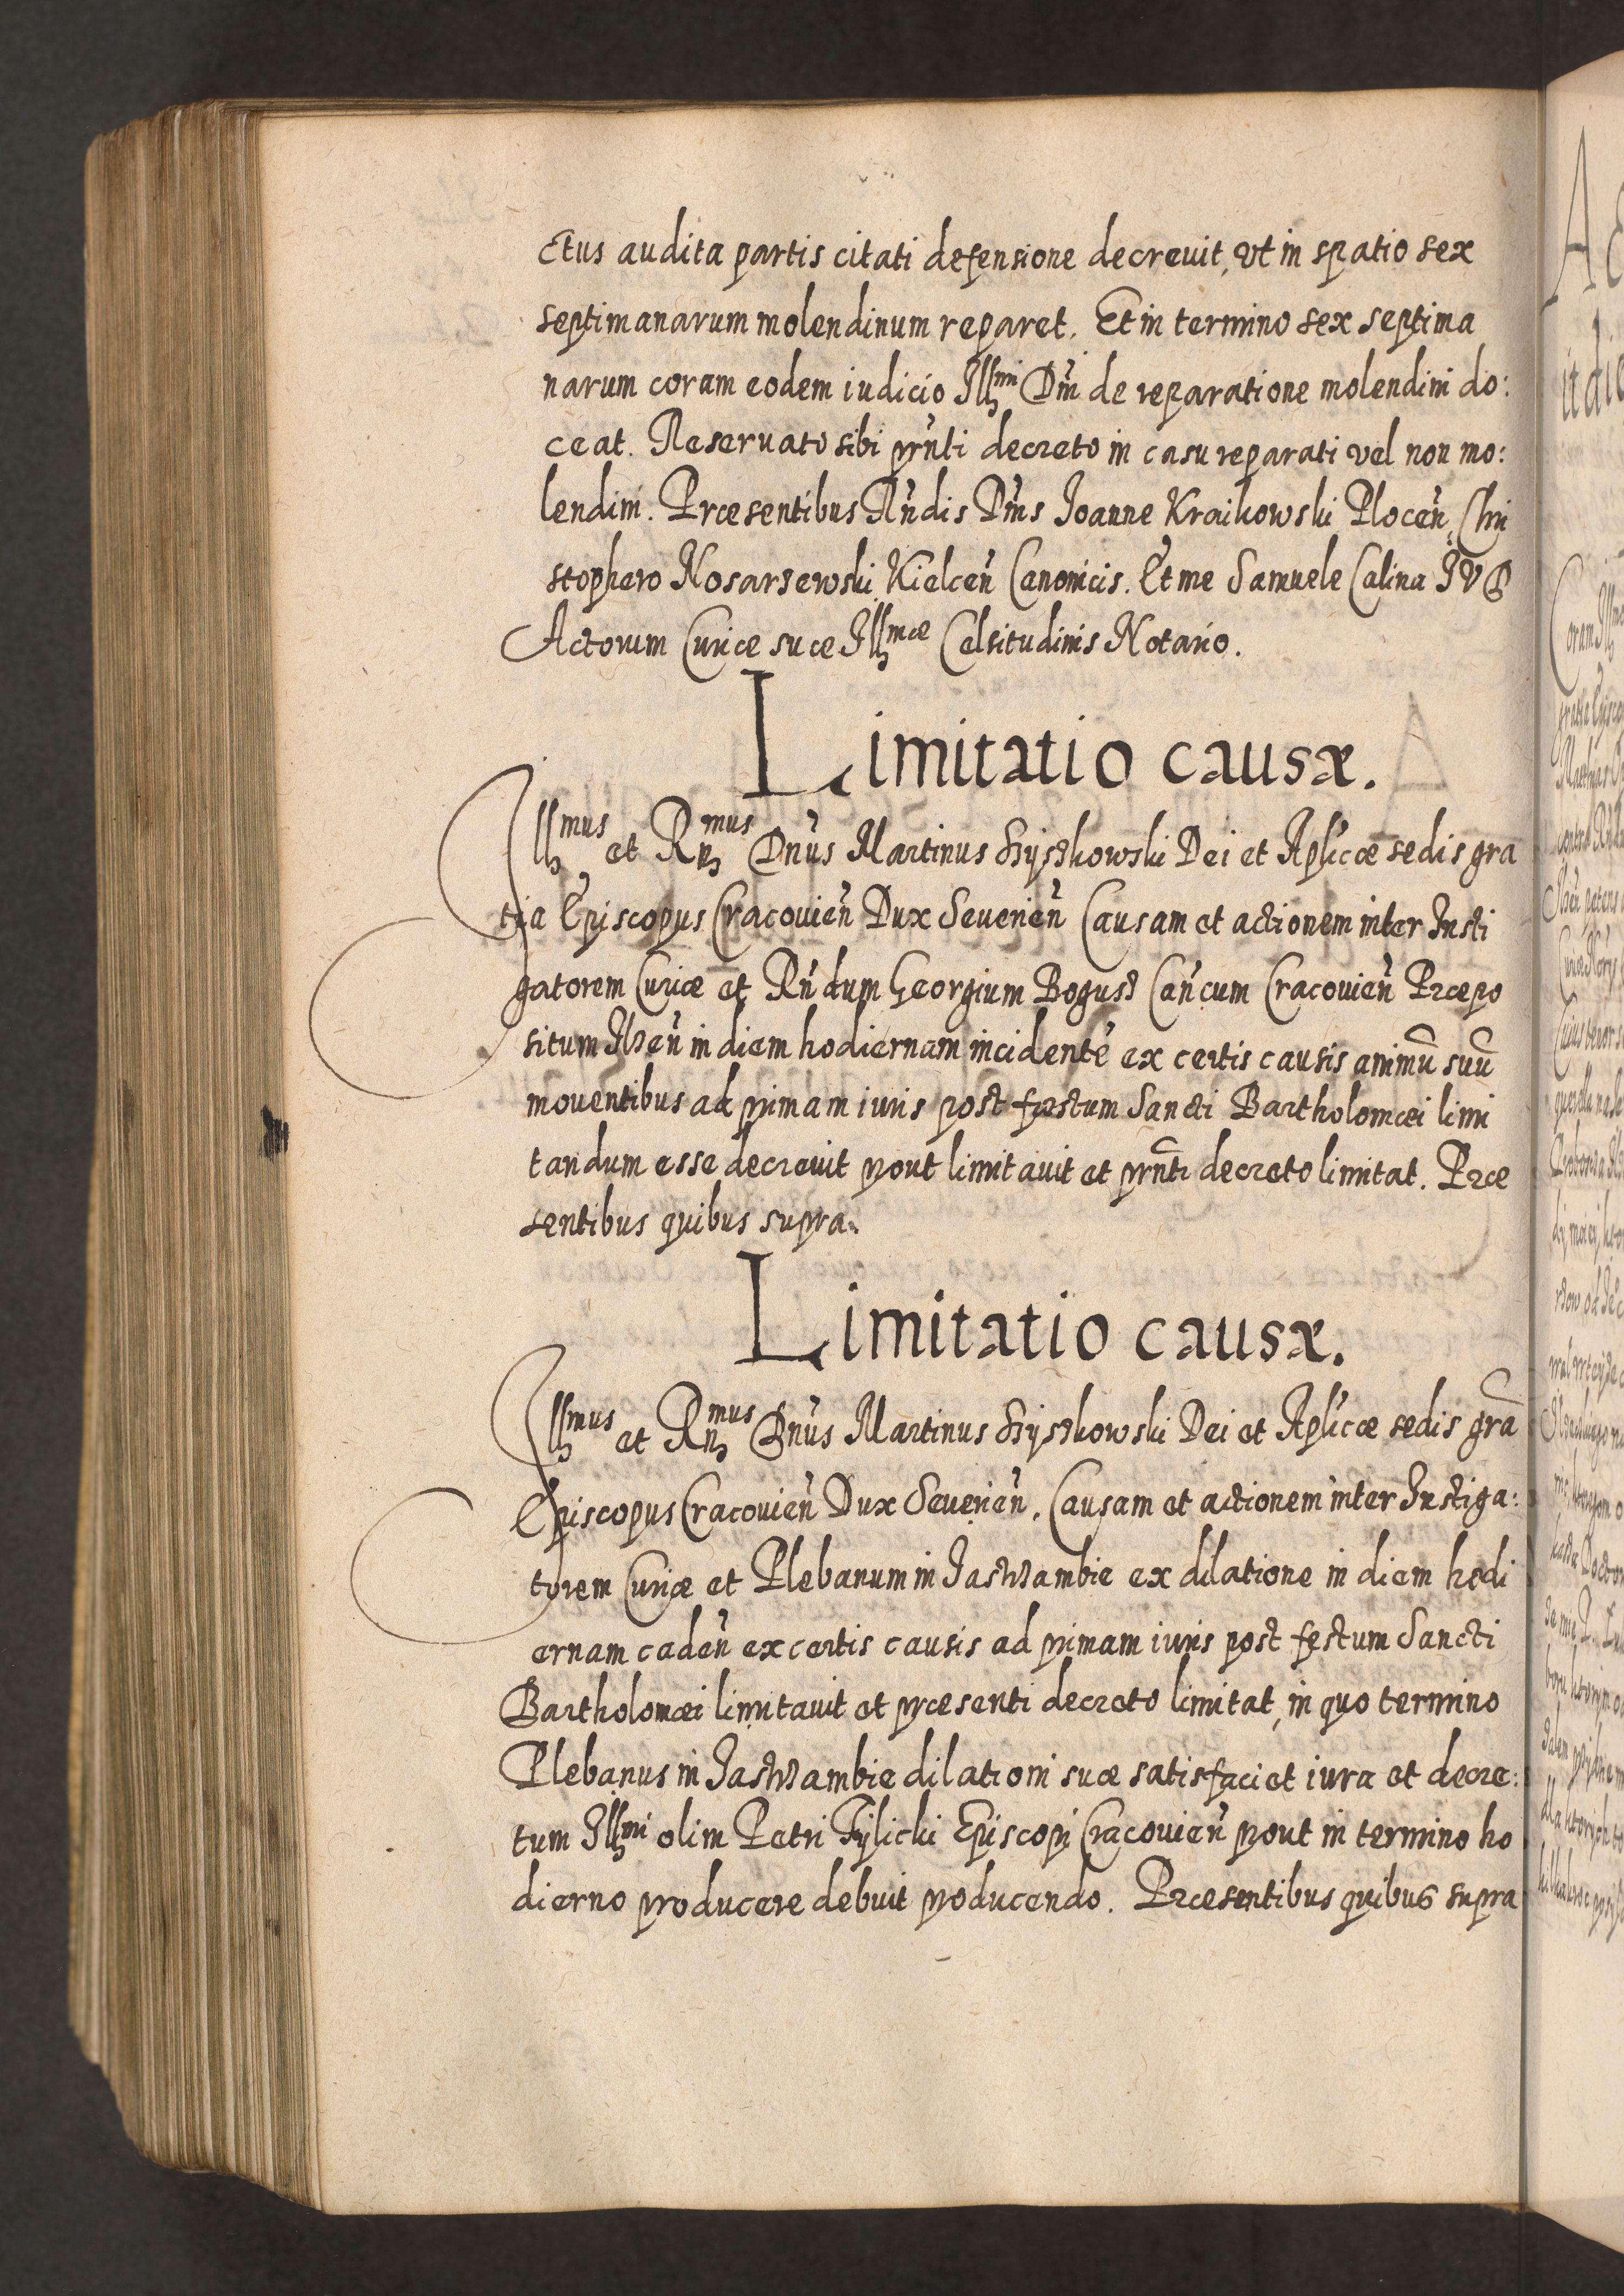 ctus audita partis citati defensione decrevit, vt in spatio sex
septimanarum molendinum reparet. Et in termino sex septima
narum coram eodem iudicio Illmi Dni de reparatione molendini do:
ceat. Reservato sibi pnti decreto in casu reparati vel non mo:
lendini. Præsentibus Rndis Dnis Joanne Kraikowski Plocen, Chri
stophero Nosarzewski Kielcen Canonicis. Et me Samuele Calina JVD
Actorum Curiæ suæ Illmæ Celsitudinis Notario.
Limitatio causæ.
Illmus et Rmus Dnus Martinus Szyszkowski Dei et Aplicæ sedis gra
tia Episcopus Cracovien Dux Severien Causam et actionem inter Insti
gatorem Curiæ et Rndum Georgium Bogusz Cancum Cracovien Præpo
situm Ilzen in diem hodiernam incidente ex certis causis animu suu
moventibus ad primam iuris post festum Sancti Bartholomæi limi
tandum esse decrevit prout limitavit et pnti decreto limitat. Præ
sentibus quibus supra.
Limitatio causæ.
Illmus et Rmus Dnus Martinus Szyszkowski Dei et Aplicæ sedis gra
Episcopus Cracovien Dux Severien. Causam et actionem inter Instiga:
torem Curiæ et Plebanum in Jastrzambie ex dilatione in diem hodi
ernam caden ex certis causis ad primam iuris post festum Sancti
Bartholomæi limitavit et præsenti decreto limitat, in quo termino
Plebanus in Jastrzambie dilationi suæ satisfaciet iura et decre:
tum Illmi olim Petri Tylicki Episcopi Cracovien prout in termino ho
dierno producere debuit producendo. Præsentibus quibus supra